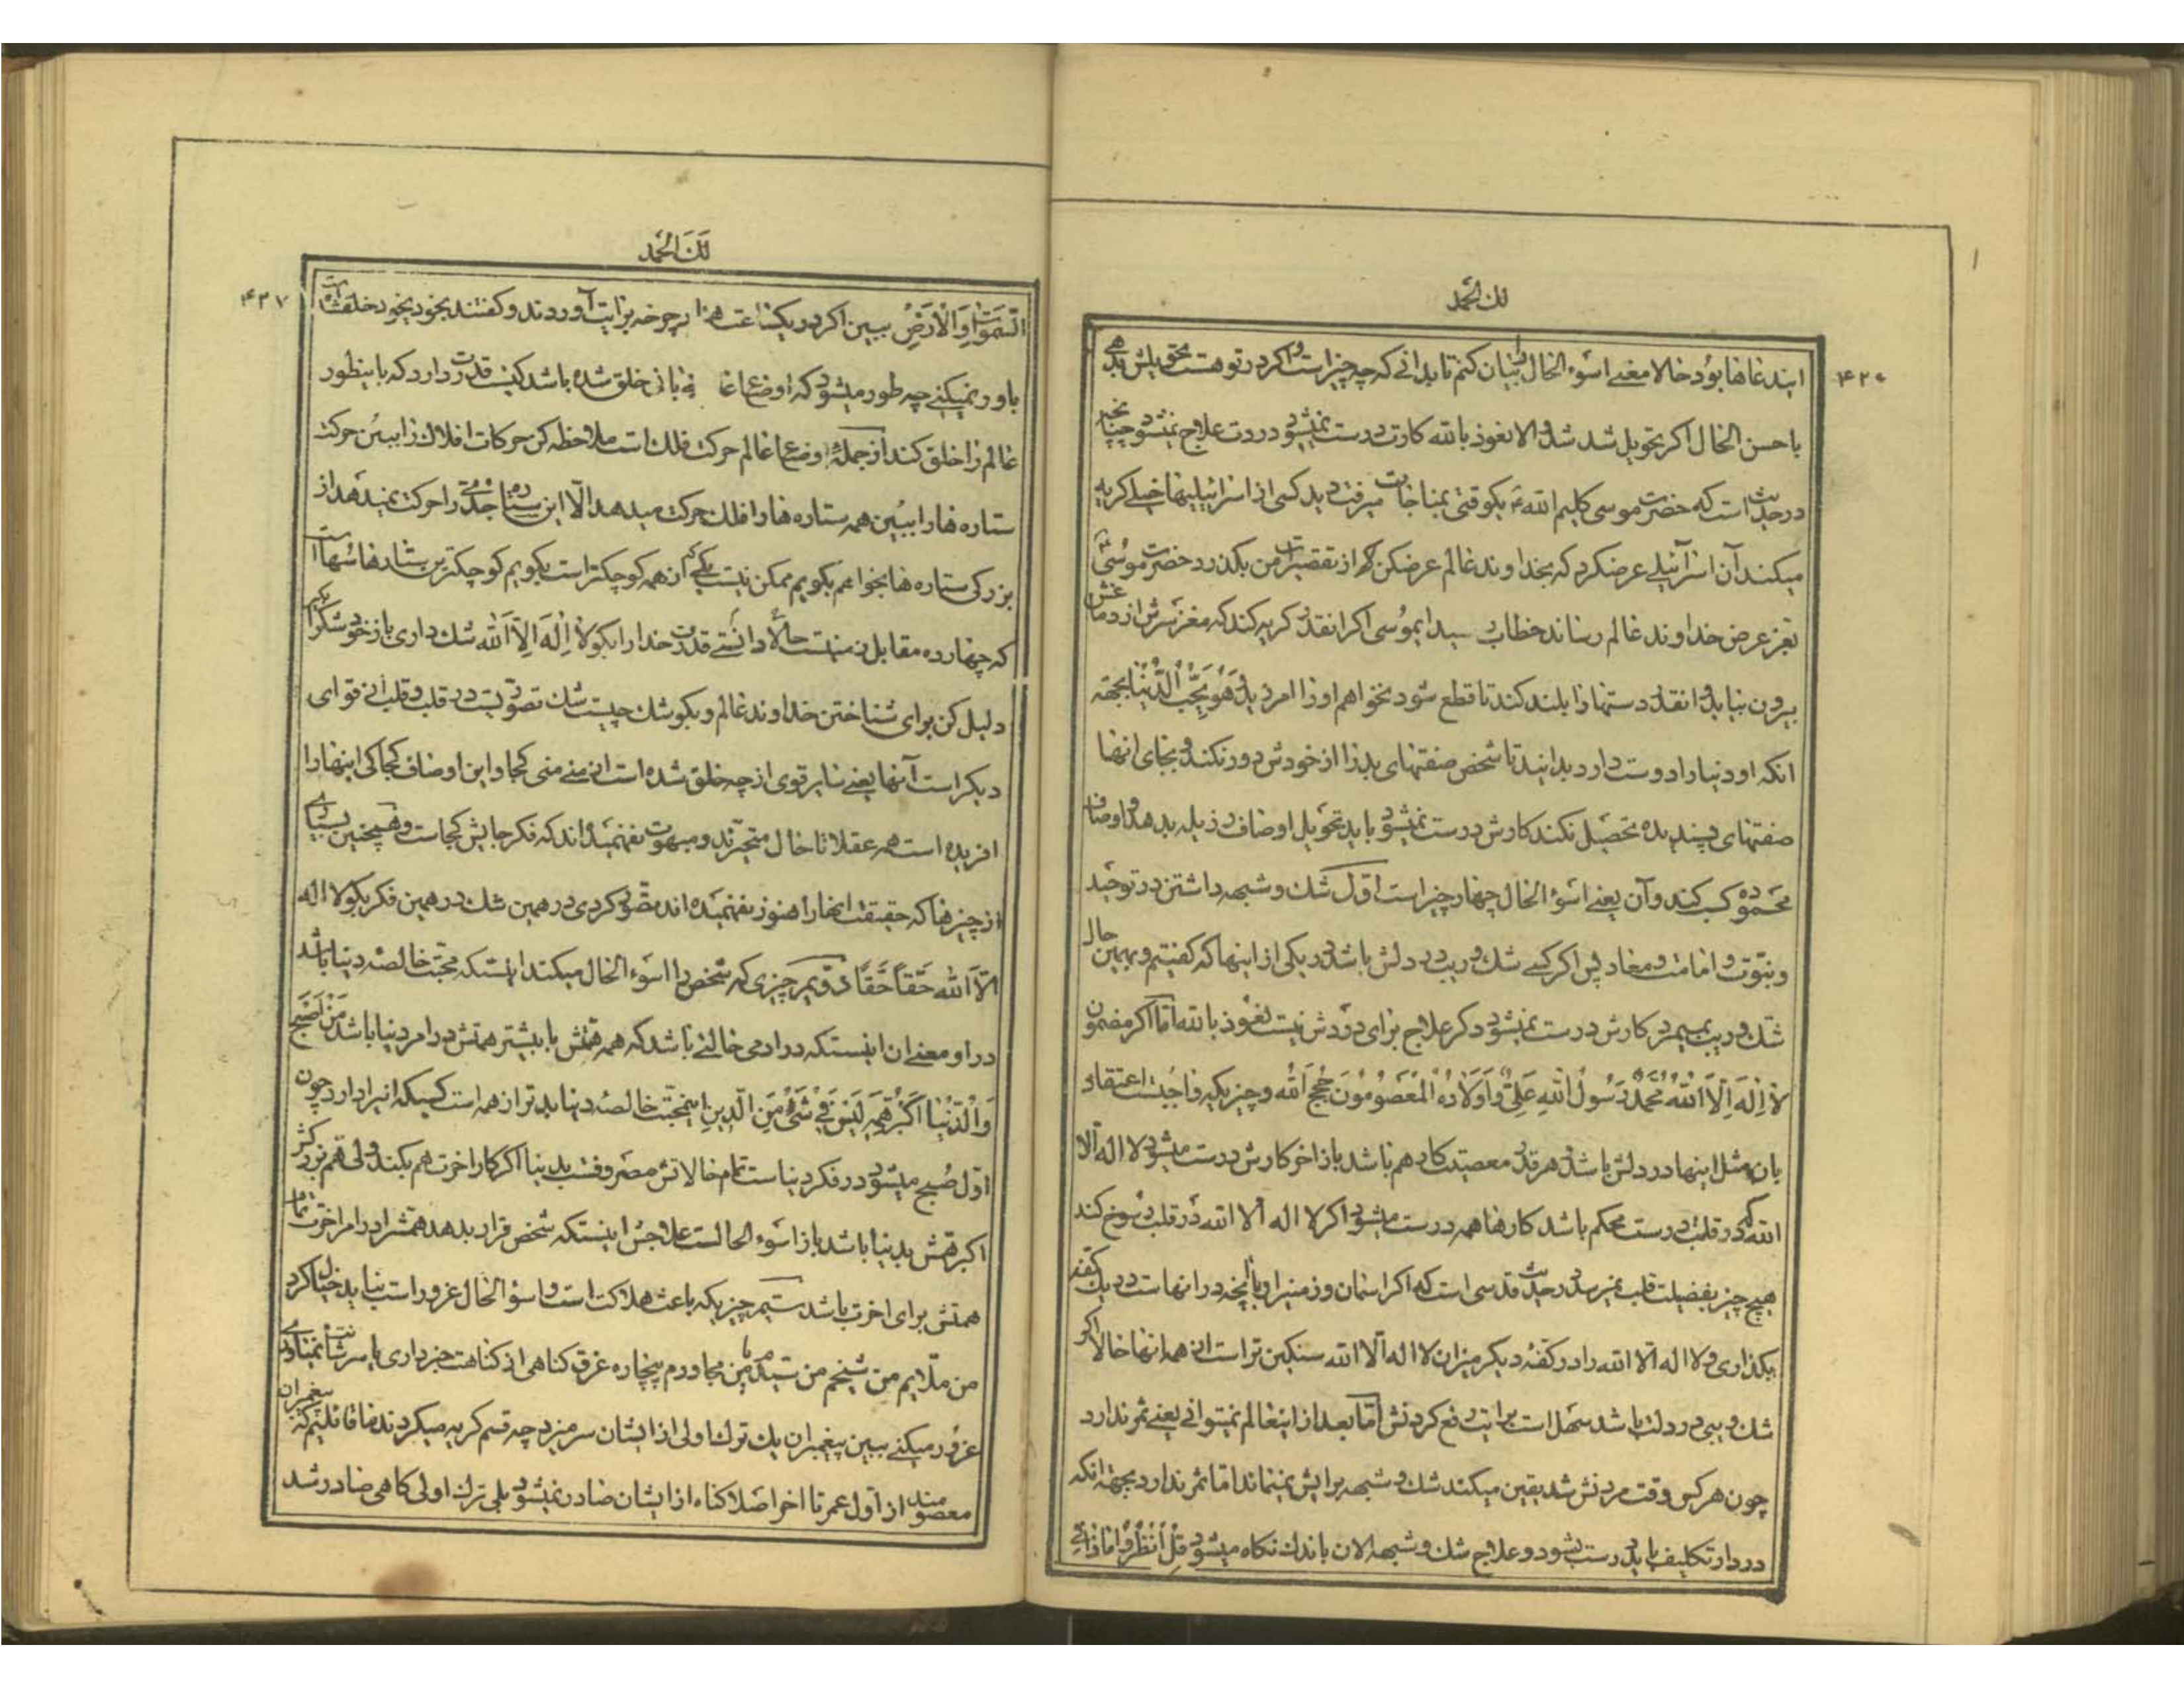 لك الحمد
۴۲۰
ایندعاها بود حالا معنی اسوء الحال را بیان کنم تا بدانی که چه چیز است و اگر در تو هست تحویلش بدهی
باحسن الحال اگر تحویل شد شد والا نعوذ بالله کارت درست نمیشود دردت علاج نمیشود چنانچه
در حدیث است که حضرت موسی کلیم الله ع یکوقتی بمناجات میرفت دید کسی از اسرائیلیها خیلی گریه
میکند آن اسرائیلی عرضکرد که بخداوند عالم عرضکن که از تقصیرات من بگذرد حضرت موسی ع
بعز عرض خداوند عالم رساند خطاب رسید ایموسی اگر انقدر گریه کند که مغز سرش از دماغش
بیرون بیاید و انقدر دستها را بلند کند تا قطع شود نخواهم او را امرزید وَهُوَ یُحِبُّ الدُّنْیٰا بجهة
انکه او دنیا را دوست دارد بدانید تا شخص صفتهای بد را از خودش دور نکند و بجای انها
صفتهای پسندیده تحصیل نکند کارش درست نمیشود باید تحویل اوصاف رذیله بدهد و اوصاف
محموده کسب کند و آن یعنی اسوء الحال چهار چیز است اول شك و شبهه داشتن در توحید
و نبوّت و امامت و معاد پس اگر کسی شك و ریب در دلش باشد در یکی از اینها که گفتیم و بهمین حال
شك و ریب بمیرد کارش درست نمیشود دگر علاج برای دردش نیست نعوذ بالله اما اگر مضمون
لاٰ اِلٰهَ اِلاَّ اللهُ مُحَمَّدٌ رَسُولُ اللهِ عَلِیٌّ وَاَوْلاٰدُهُ الْمَعْصُومُونَ حُجَجُ اللهِ و چیزیکه واجبست اعتقاد
بان مثل اینها در دلش باشد هر قدر معصیت کار هم باشد باز اخر کارش درست میشود لا اله الا
الله که در قلب درست محکم باشد کارها همه درست میشود اگر لا اله الا الله در قلب رسوخ کند
هیچ چیز بفضیلت قلب نمیرسد در حدیث قدسی است که اگر اسمان و زمین را و بانچه در انهاست در یك کفه
بگذاری و لا اله الا الله را در کفه دیگر میزان لا اله الا الله سنگین تر است از همه انها حالا اگر
شك و ریبی در دلت باشد سهل است برایت رفع کردنش اما بعد از اینعالم نمیتوانی یعنی ثمر ندارد
چون هر کس وقت مردنش شد یقین میکند شك و شبهه برایش نمیماند اما ثمر ندارد بجهة انکه
در دار تکلیف باید درست بشود و علاج شك و شبهه الان باندك نگاه میشود قُلْ اُنْظُرُوا مٰاذٰا فِی
لَكَ الْحَمْد
۴۲۷
السَّمٰوٰاتِ وَالْاَرْضِ ببین اگر در یکساعت هذا چرخه برایت آوردند و گفتند بخود بخود خلقشده است
باور نمیکنی چه طور میشود که اوضاع عالم بی بانی خلق شده باشد کیست قدرت دارد که باینطور
عالم را خلق کند از جمله اوضاع عالم حرکت فلك است ملاحظه کن حرکات افلاك را ببین حرکت
ستاره ها را ببین همه ستاره ها را فلك حرکت میدهد الّا این ستاره جُدَی را حرکت نمیدهد از
بزرگی ستاره ها بخواهم بگویم ممکن نیست یکی که از همه کوچکتر است بگویم کوچکترین ستارها سُها است
که چهارده مقابل زمینست حالا دانستی قدرت خدا را بگو لاٰ اِلٰهَ اِلاَّ اللهُ شك داری باز خود شك را بگیر
دلیل کن برای شناختن خداوند عالم و بگو شك چیست شك تصوریست در قلب و قلب از قوای
دیگر است آنها یعنی سایر قوی از چه خلق شده است از منی منی کجا و این اوصاف کجا کی اینها را
افریده است همه عقلا تا حال متحیرند و مبهوت نفهمیده اند که فکر جایش کجاست و همچنین بسیاری
از چیزها که حقیقت انها را هنوز نفهمیده اند تصور کردی در همین شك در همین فکر بگو لا اله
الاّ الله حَقّاً حَقّاً دویم چیزی که شخص را اسوء الحال میکند اینستکه محبت خالصه دنیا باشد
در او معنی ان اینستکه در ادمی حالتی باشد که همه همّتش یا بیشتر همتش در امر دنیا باشد مَنْ اَصْبَحَ
وَالدُّنْیٰا اَکْبَرُ هَمِّهِ لَیْسَ فِی شَیْءٍ مِنَ الدِّینِ اینمحبت خالصه دنیا بدتر از همه است کسیکه انیرا دارد چون
اول صبح میشود در فکر دنیاست تمام حالاتش مصروفست بدنیا اگر کار اخرت هم بکند ولی هم بزرگترش
اکبر همّش بدنیا باشد باز اسوء الحالست علاجش اینستکه شخص قرار بدهد همتشرا در امر اخرت تمام
همتش برای اخرت باشد سیّم چیزیکه باعث هلاکت است و اسوء الحال غرور است نباید خیال کرد
من ملّایم من شیخم من سیدم یا من مجاورم بیچاره غرق گناهی از گناهت خبر داری یا سرشارت نمیاوری
غرور میکنی ببین پیغمبران یك ترك اولی از ایشان سر میزد چه قسم گریه میکردند ما قائلیم که پیغمبران
معصومند از اول عمر تا اخر اصلا گناه از ایشان صادر نمیشود بلی ترك اولی گاهی صادر شد